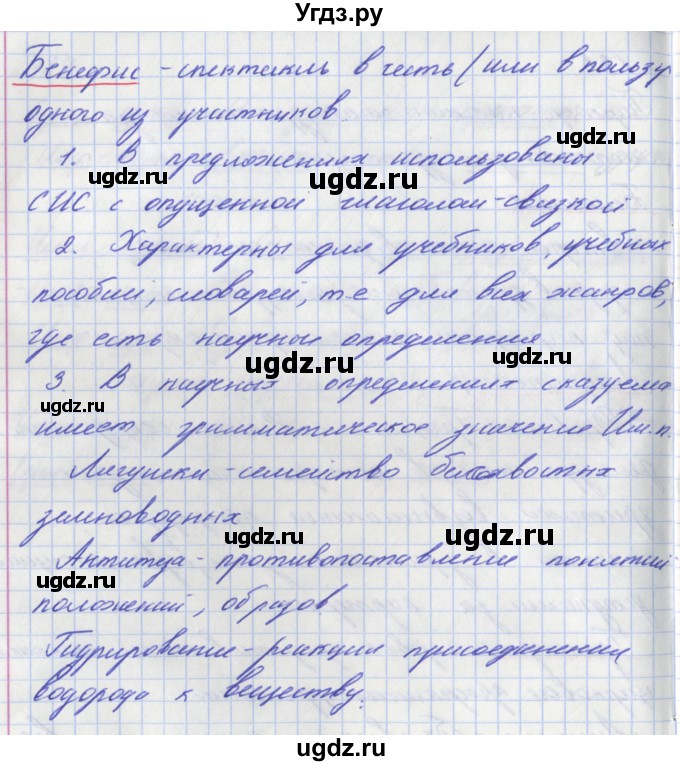 Угдз.ру
Бенефис - спектакль в честь (или в пользу
одного из участников.
ugdz.ru
1. В предложениях использованы
ugdz.ru
ugdz.ru
СИС с опущенной глаголом-связкой
2. Характерны для учебников, учебных
ugdz.ru
ugdz.ru
пособий, словарей, т.е для всех жанров,
где есть научные определения
ugdz.ru
ugdz.ru
3. В научных определениях сказуема
ugdz.ru
имеет грамматическое значение Им.п.
Лягушки - семейство бесхвостых
земноводных
ugdz.ru
ugdz.ru
Антитеза - противопоставление понятий
ugdz.ru
положений, образов.
ugdz.ru
Гидрирование - реакция присоединения
ugdz.ru
водорода к веществу.
ugdz.ru
ugdz.ru